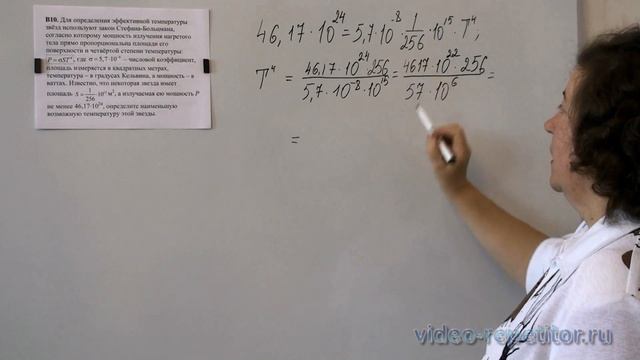 В10. Для определения эффективной температуры
звёзд используют закон Стефана-Больцмана,
согласно которому мощность излучения нагретого
тела прямо пропорциональна площади его
поверхности и четвёртой степени температуры:
P = σST⁴, где σ = 5,7·10⁻⁸ – числовой коэффициент,
площадь измеряется в квадратных метрах,
температура – в градусах Кельвина, а мощность – в
ваттах. Известно, что некоторая звезда имеет
площадь S = 1/256 · 10¹⁵ м², а излучаемая ею мощность P
не менее 46,17·10²⁴, определите наименьшую
возможную температуру этой звезды.
46,17·10²⁴ = 5,7·10⁻⁸ · 1/256 · 10¹⁵ · T⁴,
T⁴ = 46,17·10²⁴·256 / 5,7·10⁻⁸·10¹⁵ = 4617·10²²·256 / 57·10⁶ =
=
video-repetitor.ru